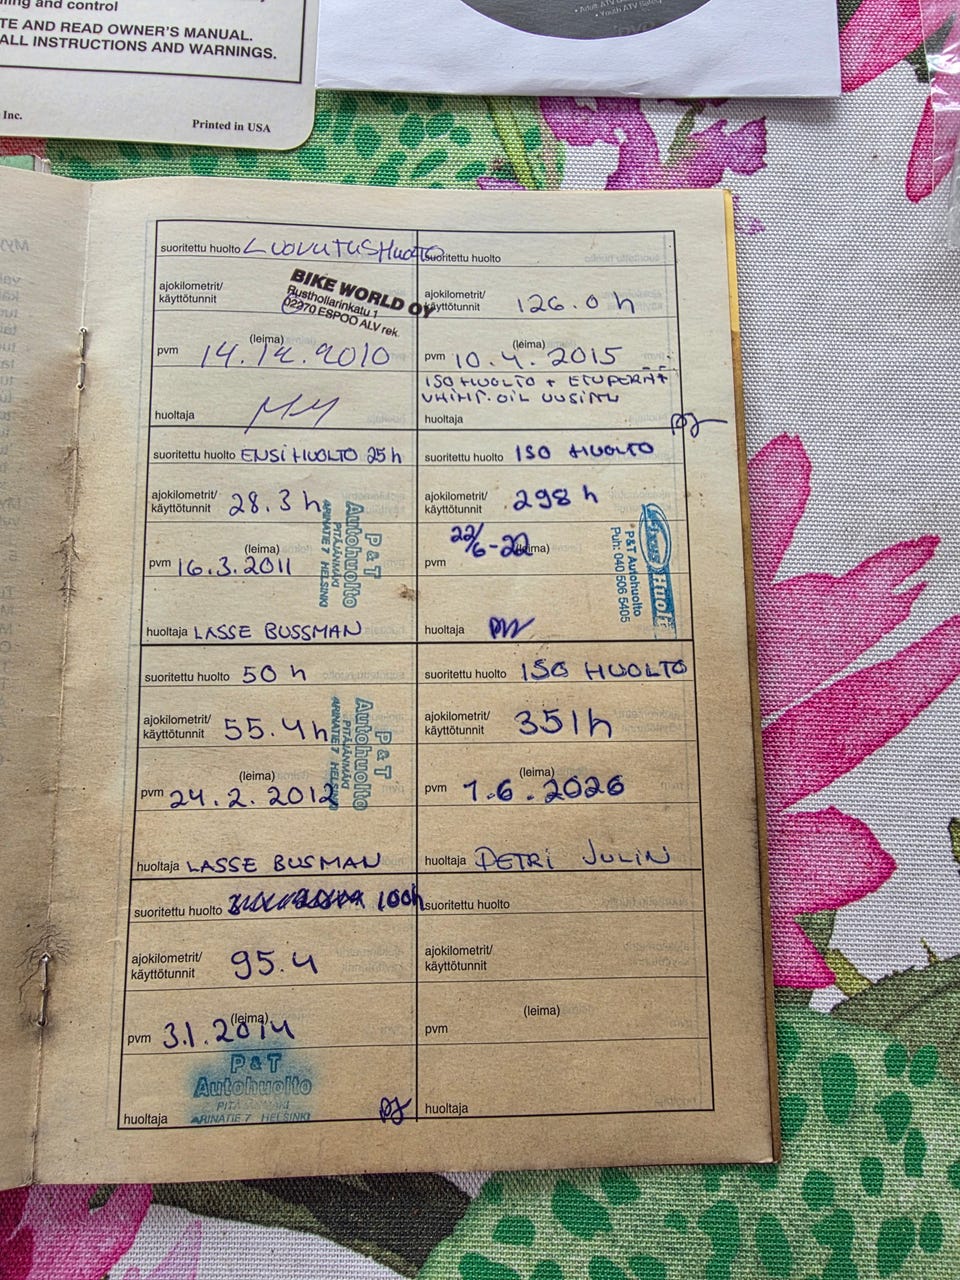 ling and control
TE AND READ OWNER'S MANUAL.
ALL INSTRUCTIONS AND WARNINGS.
Inc.
Printed in USA
• Youth ATV
suoritettu huolto LUOVUTUSHUOLTO
ajokilometrit/
käyttötunnit
BIKE WORLD OY
Rusthollarinkatu 1
02270 ESPOO ALV rek.
(leima)
pvm 14.12.2010
huoltaja
suoritettu huolto ENSIHUOLTO 25h
ajokilometrit/
käyttötunnit 28.3 h
(leima)
pvm 16.3.2011
P & T
Autohuolto
PITÄJÄNMÄKI
ARINATIE 7 HELSINKI
huoltaja LASSE BUSSMAN
suoritettu huolto 50 h
ajokilometrit/
käyttötunnit 55.4h
(leima)
pvm 24.2.2012
P & T
Autohuolto
PITÄJÄNMÄKI
ARINATIE 7 HELSINKI
huoltaja LASSE BUSMAN
suoritettu huolto 100h
ajokilometrit/
käyttötunnit 95.4
(leima)
pvm 3.1.2014
P & T
Autohuolto
PITÄJÄNMÄKI
ARINATIE 7 HELSINKI
huoltaja
suoritettu huolto
ajokilometrit/
käyttötunnit 126.0 h
(leima)
pvm 10.4.2015
ISO HUOLTO + ETUPERÄ
VAIHT. OIL UUSITU
huoltaja
suoritettu huolto ISO HUOLTO
ajokilometrit/
käyttötunnit 298 h
22/6-22
(leima)
pvm
Huolto
P&T Autohuolto
Puh: 040 506 5405
huoltaja
suoritettu huolto ISO HUOLTO
ajokilometrit/
käyttötunnit 351h
(leima)
pvm 1.6.2026
huoltaja PETRI JULIN
suoritettu huolto
ajokilometrit/
käyttötunnit
(leima)
pvm
huoltaja